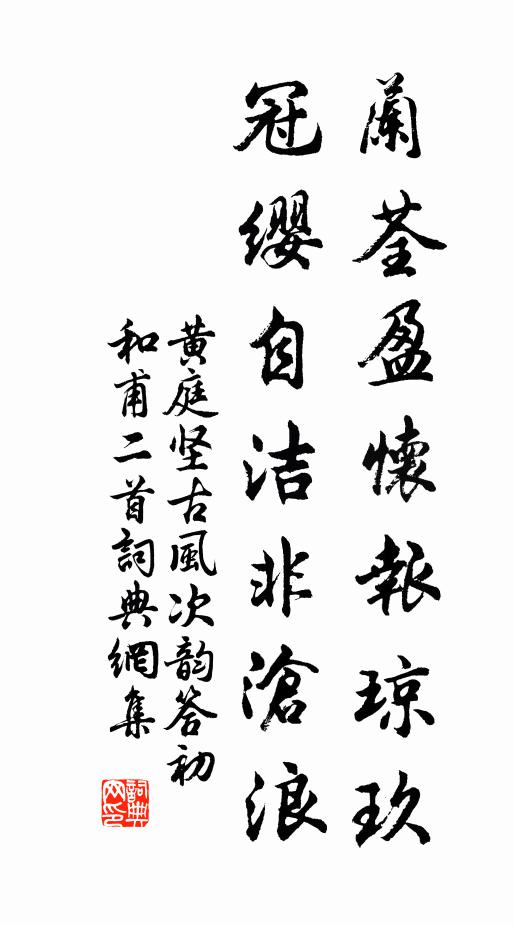 蘭荃盈懷報琼玖
冠缨自洁非滄浪
黄庭坚古風次韵答初
和甫二首詞典網集
詞典網印